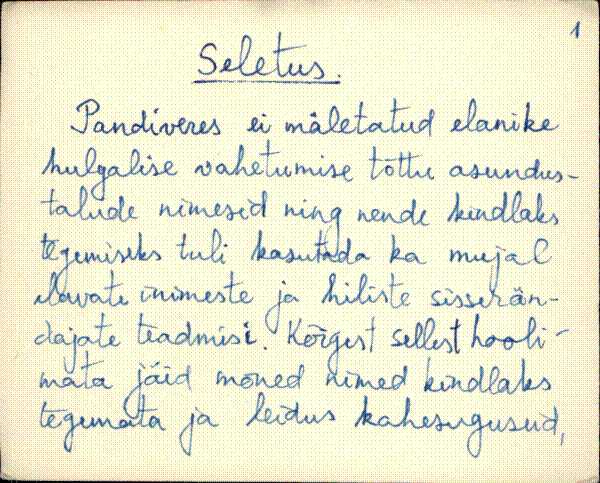 1
Seletus.
Pandiveres ei mäletatud elanike
hulgalise vahetumise tõttu asundus-
talude nimesid ning nende kindlaks
tegemiseks tuli kasutada ka mujal
elavate inimeste ja hiliste sisserän-
dajate teadmisi. Kõigest sellest hooli-
mata jäid mõned nimed kindlaks
tegemata ja leidus kahesugusid,